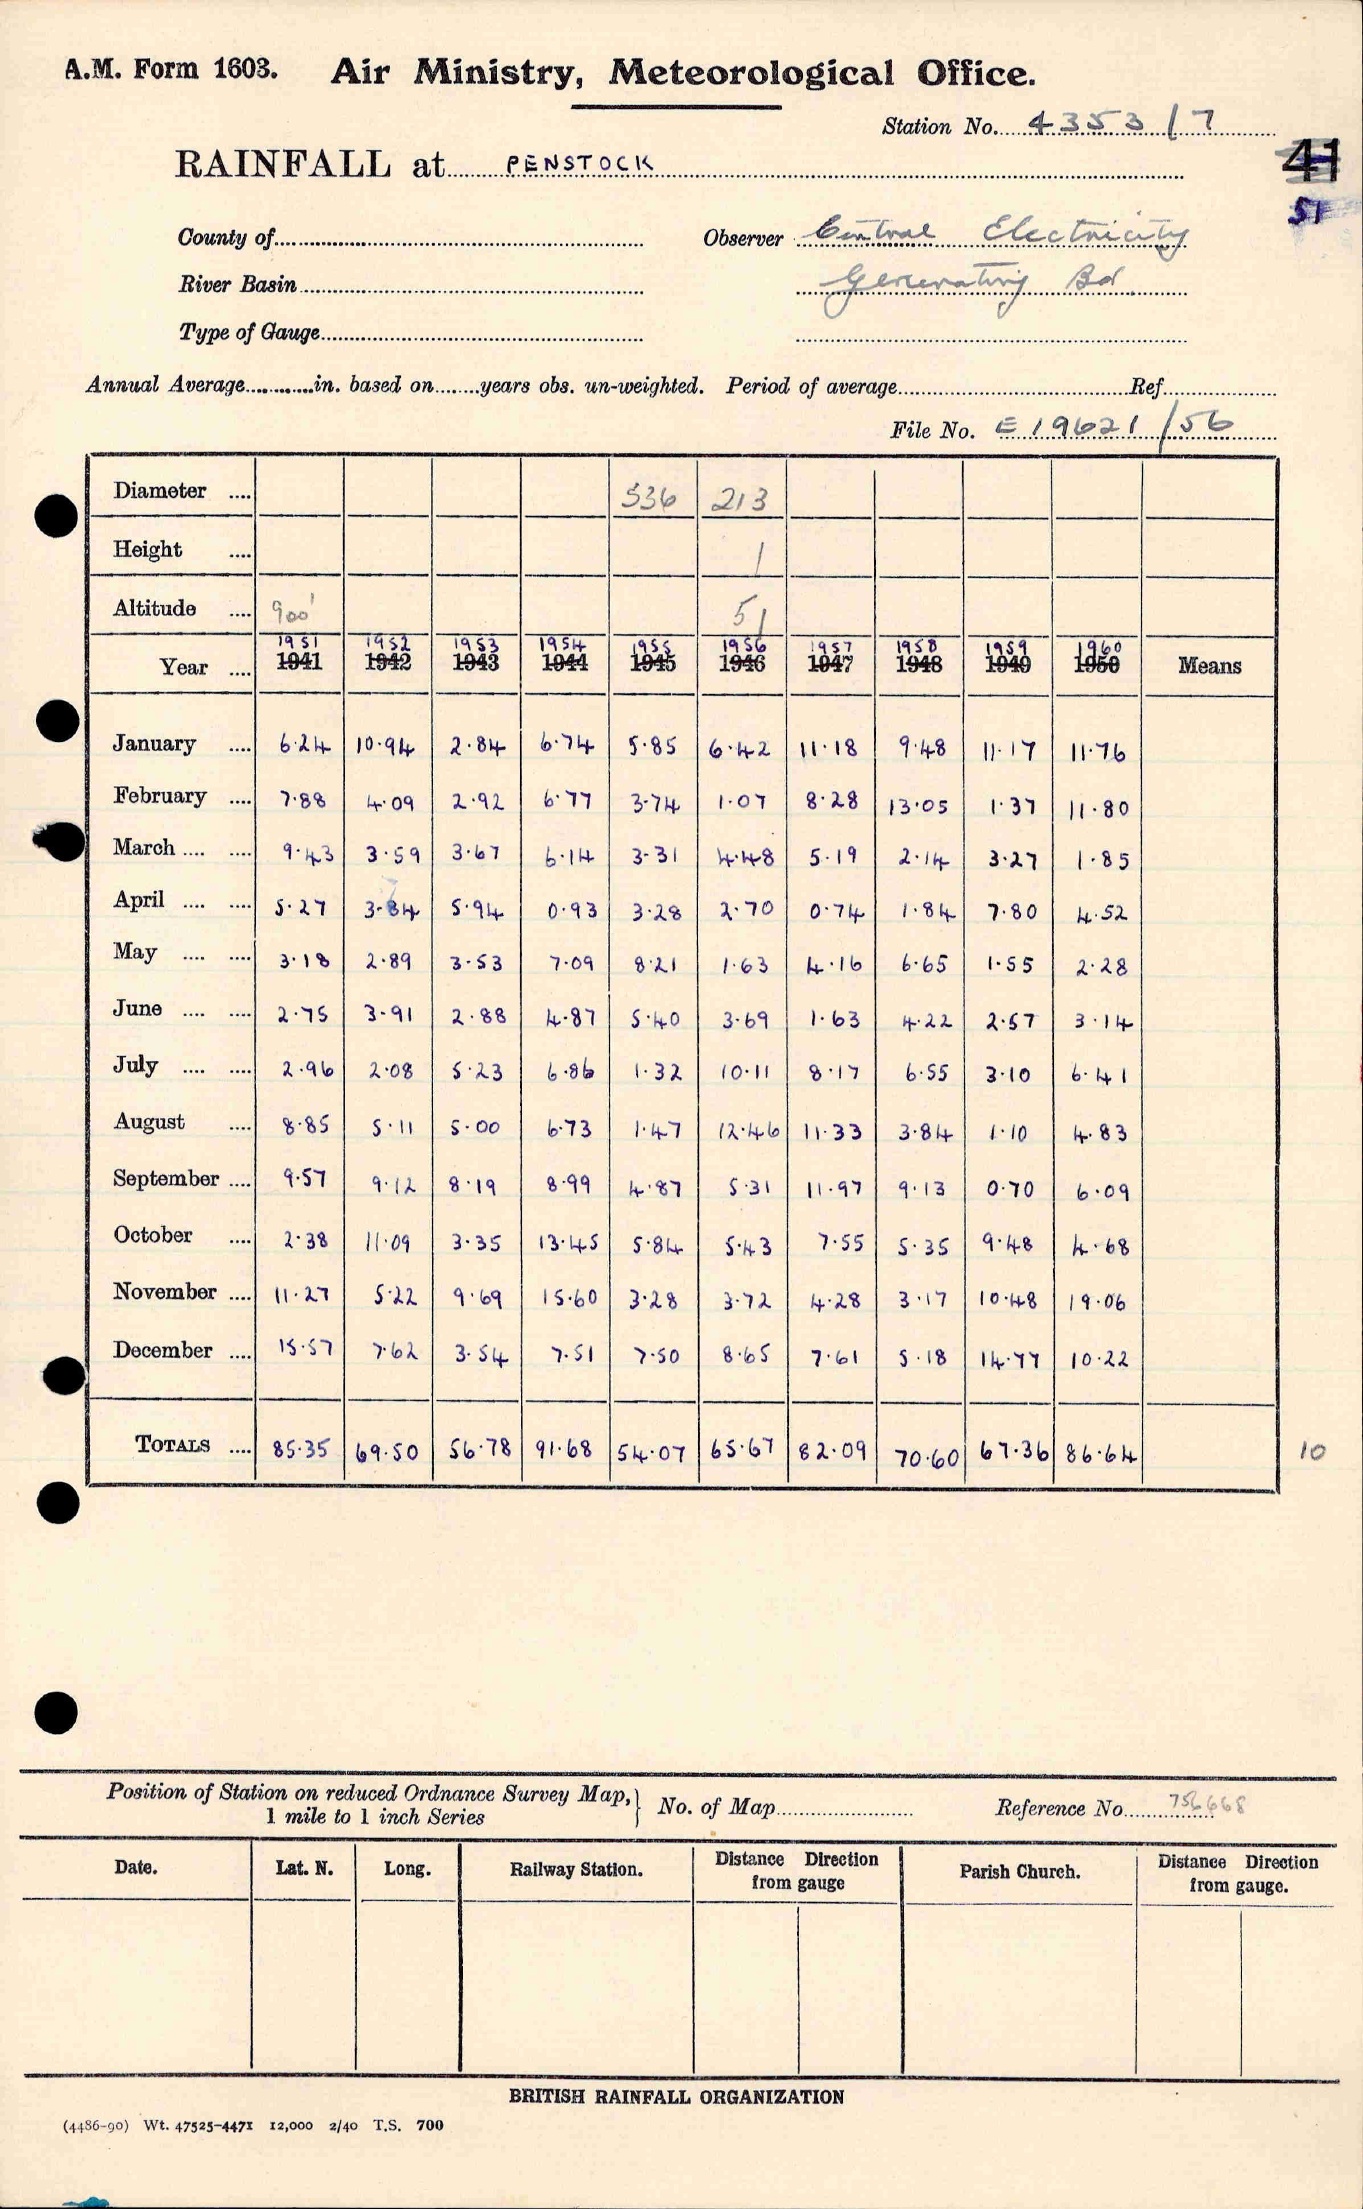 A.M. Form 1603. Air Ministry, Meteorological Office.
Station No. 4353/7
RAINFALL at PENSTOCK
41
51
County of Observer Central Electricity
River Basin Generating Bd
Type of Gauge
Annual Average in. based on years obs. un-weighted. Period of average Ref
File No. E19621/56
Diameter 536 213
Height 1
Altitude 900' 51
1951 1952 1953 1954 1955 1956 1957 1958 1959 1960
Year 1941 1942 1943 1944 1945 1946 1947 1948 1949 1950 Means
January 6.24 10.94 2.84 6.74 5.85 6.42 11.18 9.48 11.17 11.76
February 7.88 4.09 2.92 6.77 3.74 1.07 8.28 13.05 1.37 11.80
March 9.43 3.59 3.67 6.14 3.31 4.48 5.19 2.14 3.27 1.85
April 5.27 3.84 5.94 0.93 3.28 2.70 0.74 1.84 7.80 4.52
May 3.18 2.89 3.53 7.09 8.21 1.63 4.16 6.65 1.55 2.28
June 2.75 3.91 2.88 4.87 5.40 3.69 1.63 4.22 2.57 3.14
July 2.96 2.08 5.23 6.86 1.32 10.11 8.17 6.55 3.10 6.41
August 8.85 5.11 5.00 6.73 1.47 12.46 11.33 3.84 1.10 4.83
September 9.57 9.12 8.19 8.99 4.87 5.31 11.97 9.13 0.70 6.09
October 2.38 11.09 3.35 13.45 5.84 5.43 7.55 5.35 9.48 4.68
November 11.27 5.22 9.69 15.60 3.28 3.72 4.28 3.17 10.48 19.06
December 15.57 7.62 3.54 7.51 7.50 8.65 7.61 5.18 14.77 10.22
TOTALS 85.35 69.50 56.78 91.68 54.07 65.67 82.09 70.60 67.36 86.64 10
Position of Station on reduced Ordnance Survey Map, 1 mile to 1 inch Series No. of Map Reference No. 756668
Date. Lat. N. Long. Railway Station. Distance Direction from gauge Parish Church. Distance Direction from gauge.
BRITISH RAINFALL ORGANIZATION
(4486-90) Wt. 47525-4471 12,000 2/40 T.S. 700